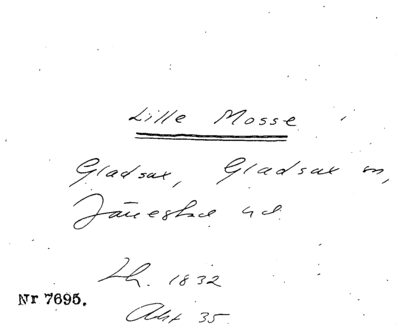 Lille Mosse
Gladsax, Gladsax sn,
Järrestad hd.
Lh. 1832
Nr 7695.
Akt 35